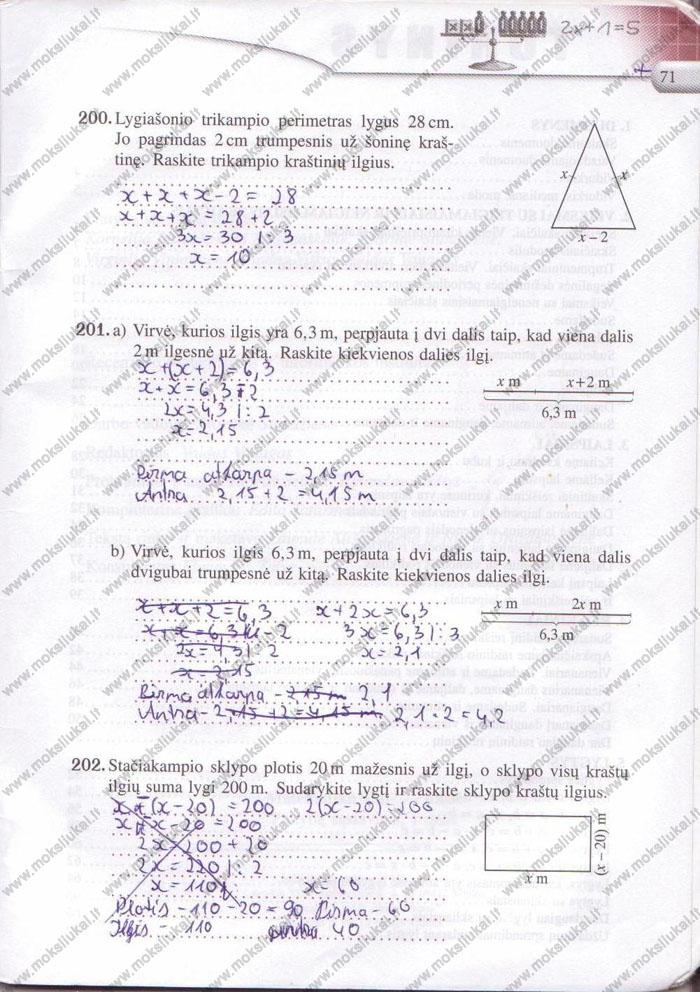 2x+1=5
71
200. Lygiašonio trikampio perimetras lygus 28 cm.
Jo pagrindas 2 cm trumpesnis už šoninę kraš-
tinę. Raskite trikampio kraštinių ilgius.
x+x+x-2=28
x+x+x=28+2
3x=30 |:3
x=10
x
x
x − 2
201. a) Virvė, kurios ilgis yra 6,3 m, perpjauta į dvi dalis taip, kad viena dalis
2 m ilgesnė už kitą. Raskite kiekvienos dalies ilgį.
x+(x+2)=6,3
x+x=6,3-2
2x=4,3 |:2
x=2,15
Pirma atkarpa - 2,15 m
Antra 2,15+2=4,15 m
x m
x+2 m
6,3 m
b) Virvė, kurios ilgis 6,3 m, perpjauta į dvi dalis taip, kad viena dalis
dvigubai trumpesnė už kitą. Raskite kiekvienos dalies ilgį.
x+x+2=6,3 x+2x=6,3
3x=6,3 |:3
2x=4,3 |:2 x=2,1
x=2,15
Pirma atkarpa - 2,15 m 2,1
Antra - 2,15+2=4,15 m 2,1·2=4,2
x m
2x m
6,3 m
202. Stačiakampio sklypo plotis 20 m mažesnis už ilgį, o sklypo visų kraštų
ilgių suma lygi 200 m. Sudarykite lygtį ir raskite sklypo kraštų ilgius.
(x-20)=200 2(x-20)=200
x-20=200
2x=200+20
2x=220 |:2
x=110 x=60
Plotis - 110-20=90 Pirma - 60
Ilgis - 110 antra 40
x m
(x − 20) m
www.moksliukai.lt